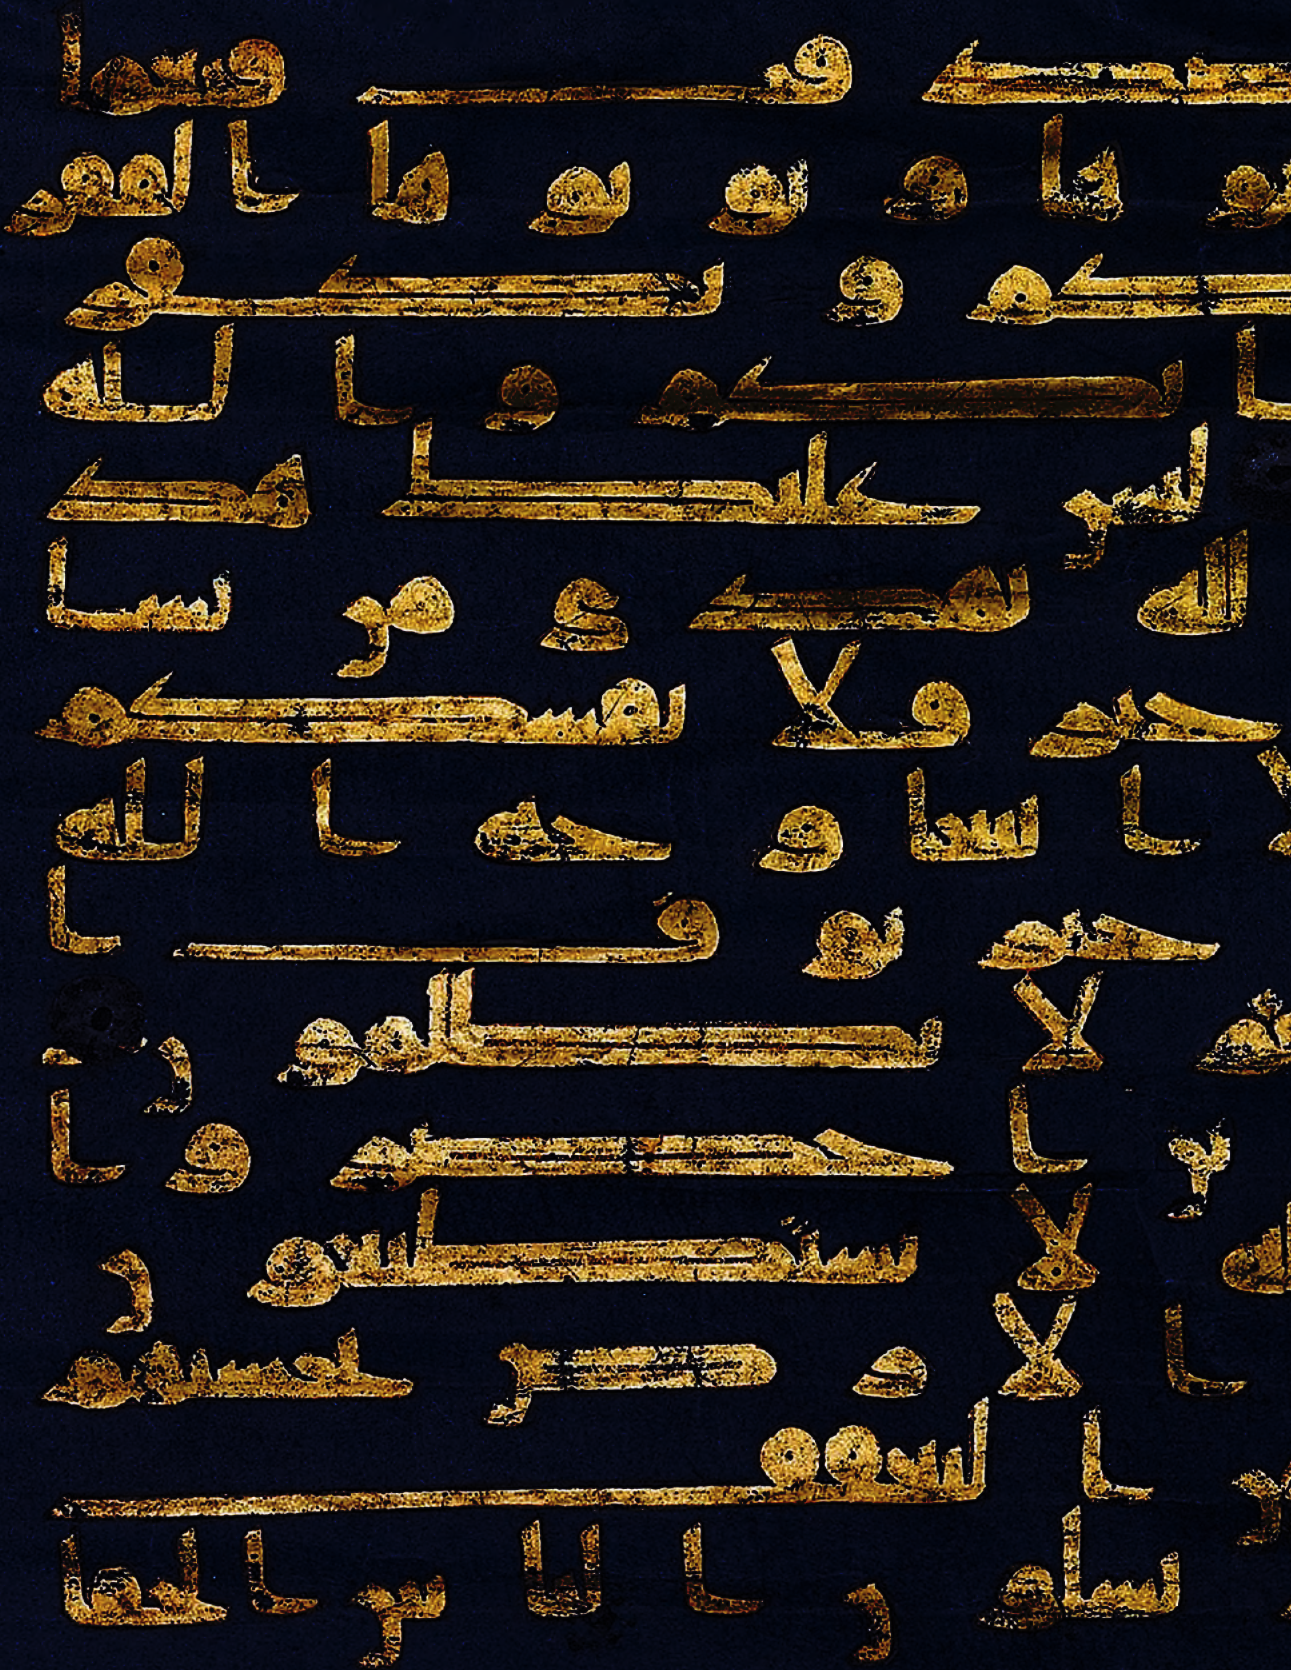 صدقت فنعما
توها وتوتوها الفقر
لكم ويكفر
اتكم والله
ليس عليك هد
الله يهدي من يشا
خير فلا نفسكم
لا ابتغا وجه الله
خير يوف ا
تم لا تظلمون
ين احصروا
لله لا يستطيعون
ا لا رض يحسبهم
من التعفف
يسلون الناس الحفا